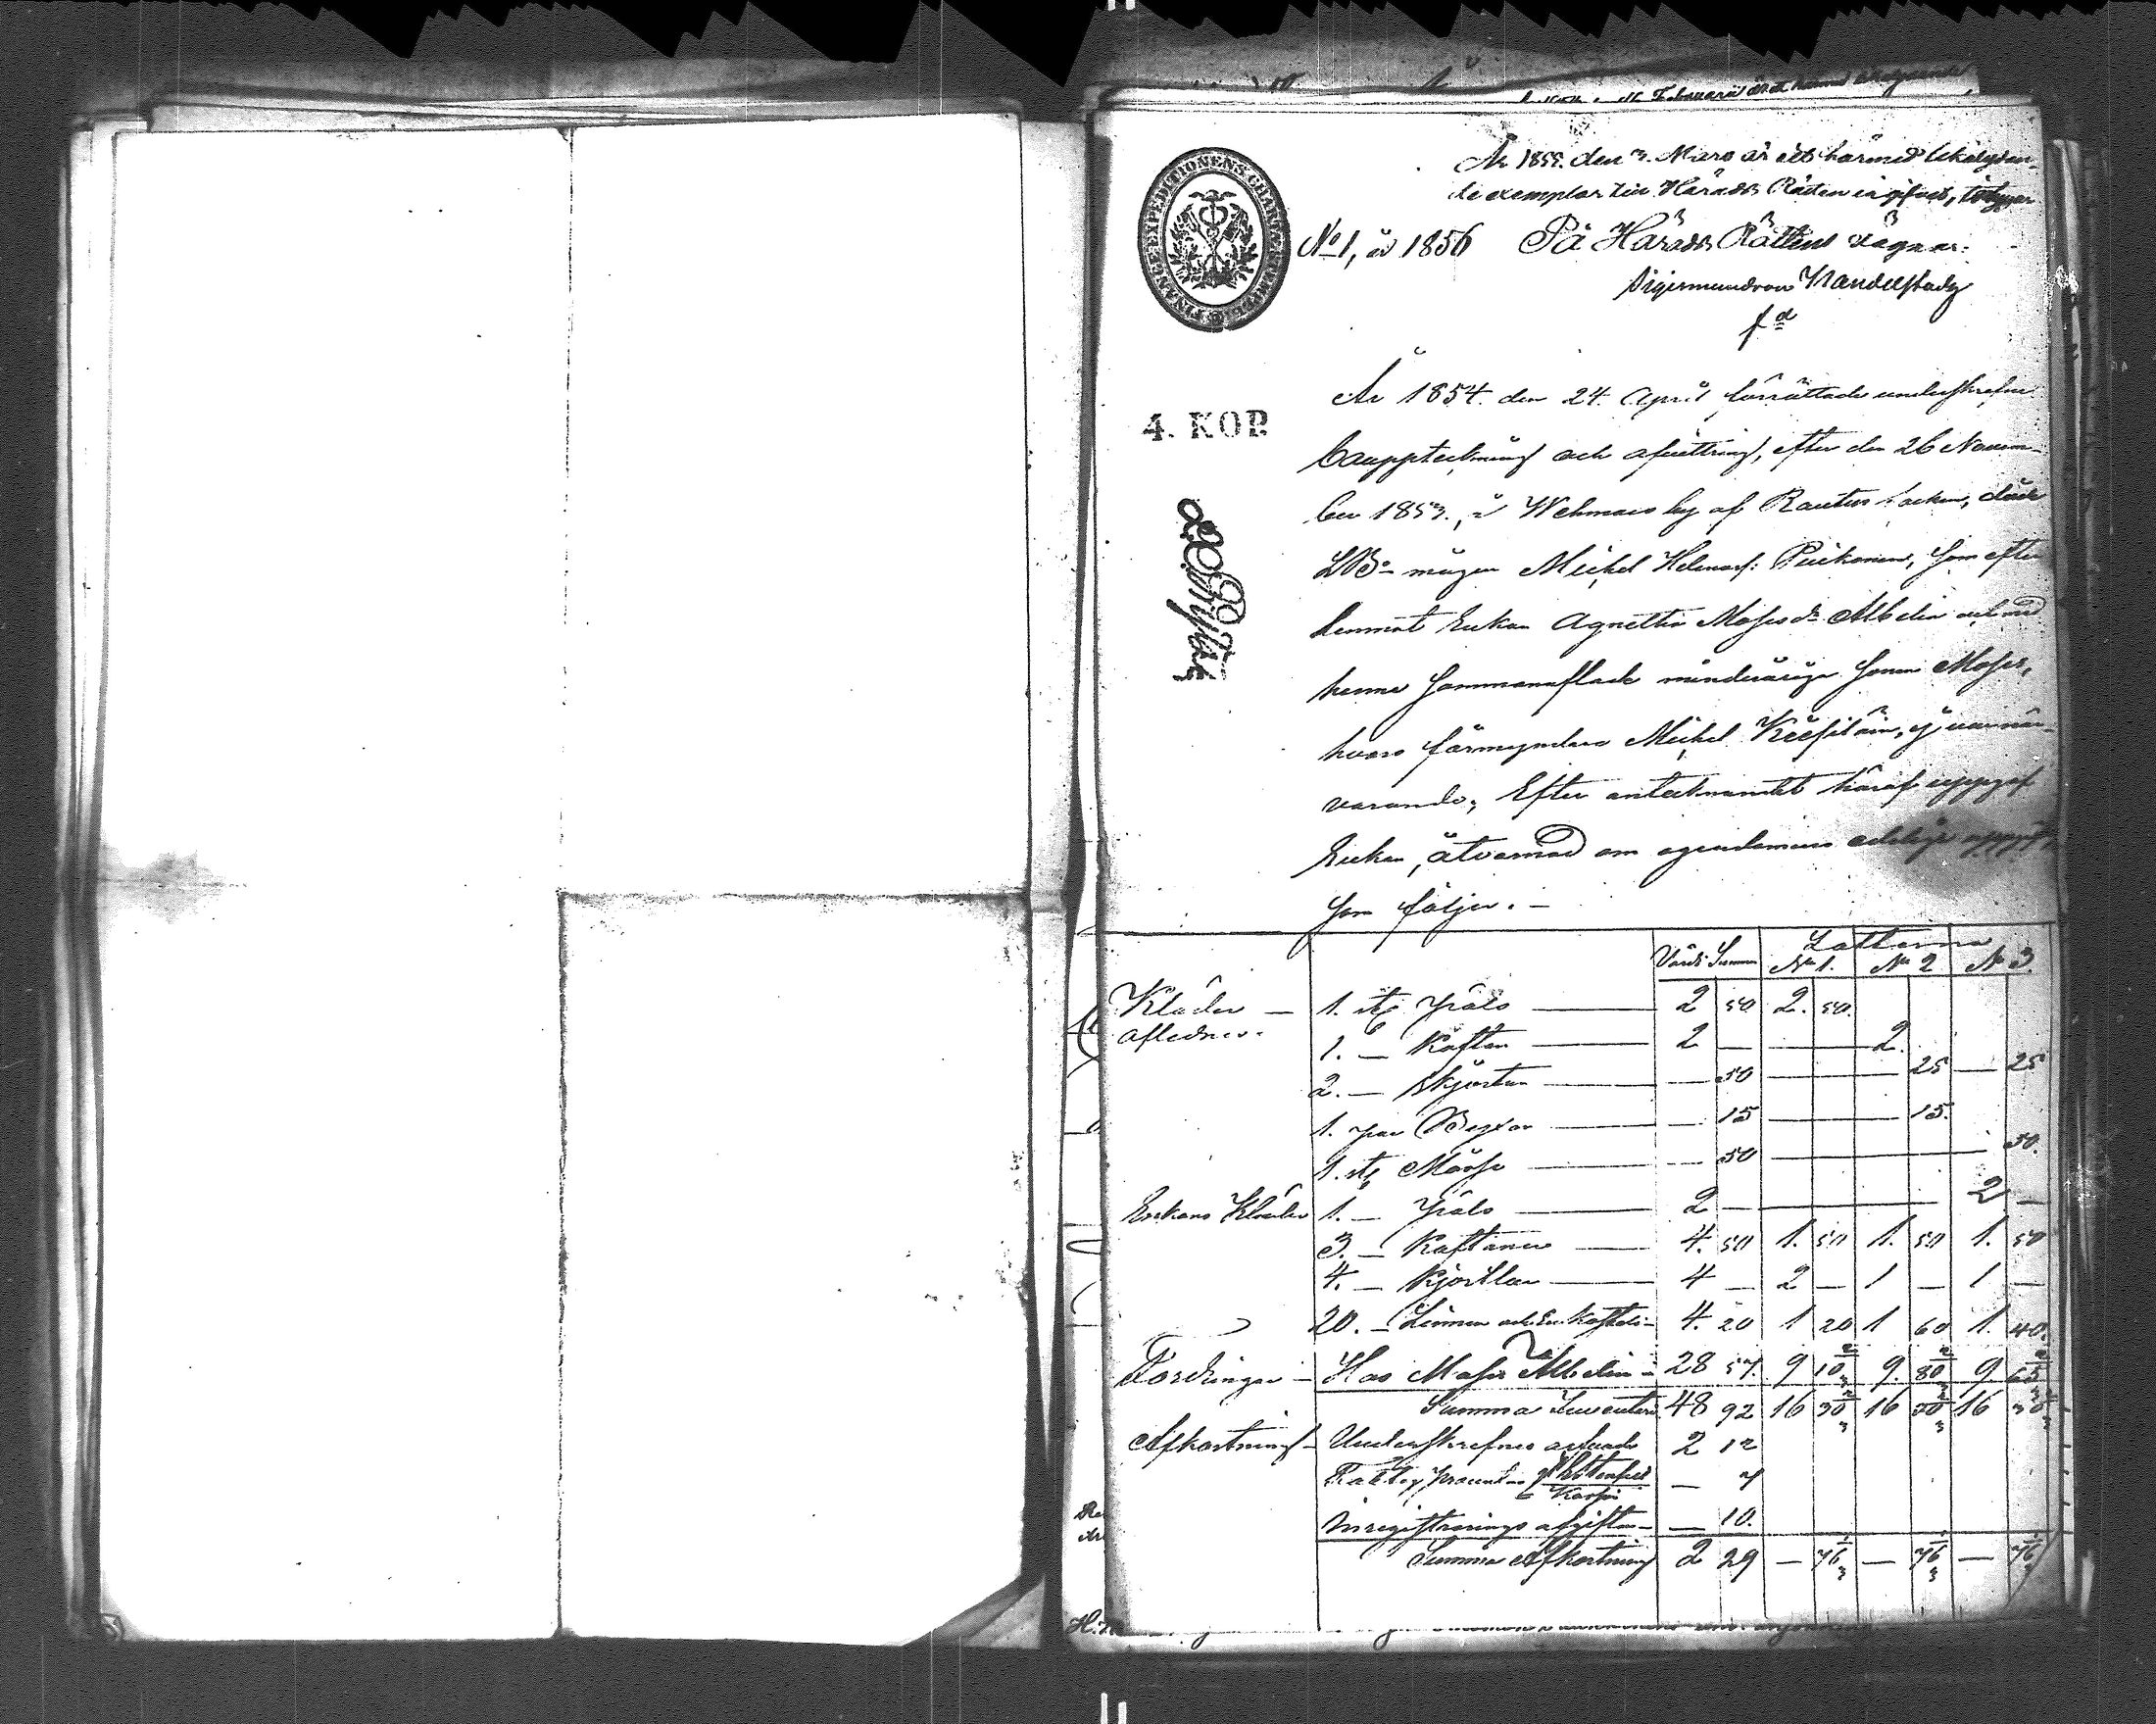 År 1855. den 3. Mars är ett härmed likalydan-
de exemplar till Härads Rätten ingifvet, betygar
No 1, år 1856 På Härads Rättens vägnar:
Sigismund von Nandelstadh
fd
FINANCE EXPEDITIONENS CHARTÆ
4. KOP.
År 1854. den 24. April förrättade underskrefne
Bouppteckning och afvittring, efter den 26 Novem-
ber 1853., i Wehmais by af Rautus socken, döde
LB:mågen Michel Helenasf: Puikonen, som efter-
lemnat Enkan Agnetha Mosesdr Albelin och med
henne sammanaflade minderårige sonen Moses,
hvars förmyndare Michel var när-
varande; Efter antecknandet häraf uppgaf
Enkan, åtvarnad om egendomens edeliga
som följer. -
Värde Summa Lotterna
No 1. No 2 No 3.
Kläder — 1. st. Päls — 2 50 2. 50.
aflednes. 1. — Kaftan — 2 — 2.
2. — Skjortor — 50 — 25 — 25
1. par Byxor — 15 — 15.
1. st. Mössa — 50 — 50.
Enkans Kläder 1. — Päls — 2 — 2 —
3. — Kaftaner — 4. 50 1. 50 1. 50 1. 50
4. — Kjortlar — 4 — 2 — 1 — 1 —
20. — Linnen och — 4. 20 1 20 1 60 1. 40.
Fordringar — Hos Moses Albelin — 28 57. 9 10 2/3 9. 80 2/3 9 65 2/3
Summa Inventarii 48 92 16 30 2/3 16 30 2/3 16 30 2/3
Afkortning — Underskrefnes arfvode 2 12
Fattig procent — 7
Inregistrerings afgiften — 10.
Summa Afkortning 2 29 — 76 1/3 — 76 1/3 — 76 1/3